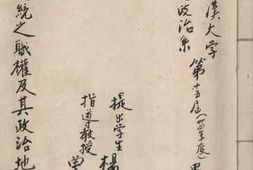 漢大学 第十五届(卅四年度)畢
政治系
提出学生 楊
指導教授
統之職權及其政治地